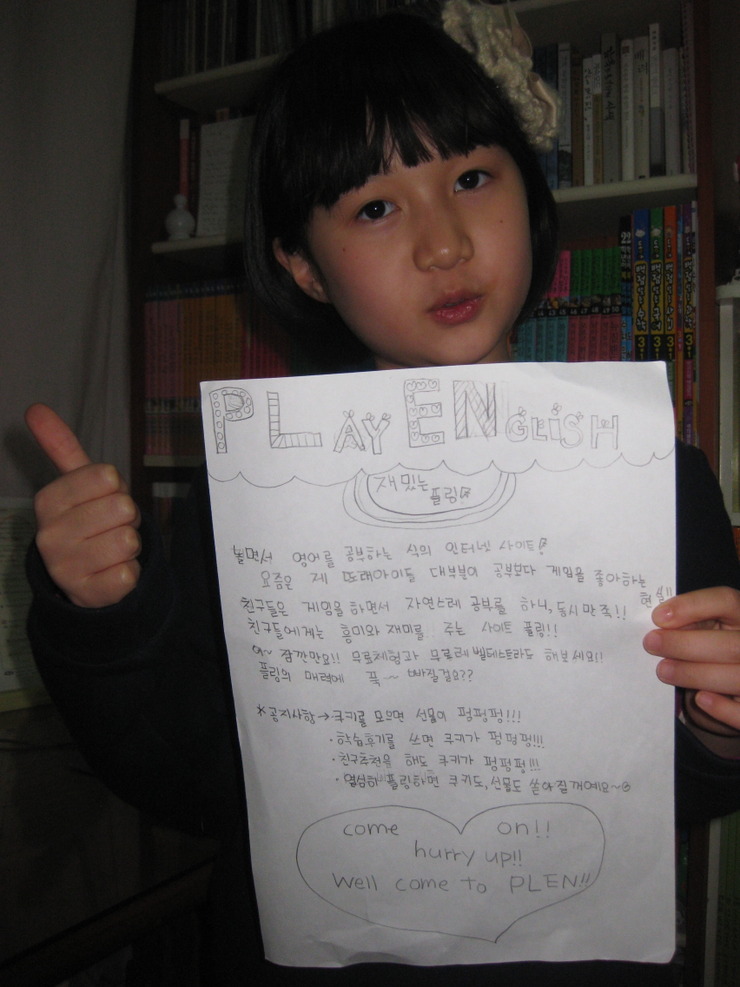 PLAY ENGLISH
재밌는
플링
놀면서 영어를 공부하는 식의 인터넷 사이트!
요즘은 제 또래아이들 대부분이 공부보다 게임을 좋아하는 현실!!
친구들은 게임을 하면서 자연스레 공부를 하니, 동시만족!!
친구들에게는 흥미와 재미를 주는 사이트 플링!!
아~ 잠깐만요!! 무료체험과 무료레벨테스트라도 해보세요!!
플링의 매력에 푹~ 빠질걸요??
*공지사항→쿠키를 모으면 선물이 펑펑펑!!!
·학습후기를 쓰면 쿠키가 펑펑펑!!!
·친구추천을 해도 쿠키가 펑펑펑!!!
·열심히 플링하면 쿠키도, 선물도 쏟아질꺼예요~
come on!!
hurry up!!
Well come to PLEN!!